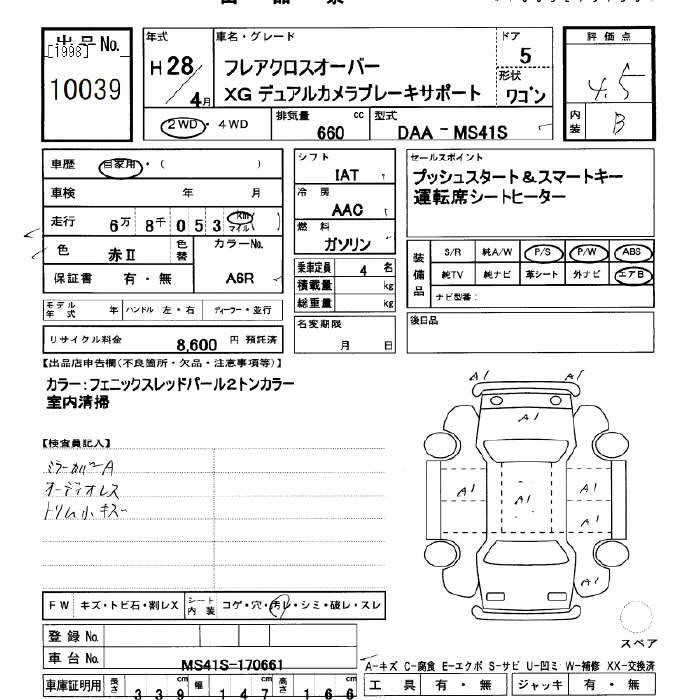 出品票
出品No.
[1998]
10039
年式
H28/4月
車名・グレード
フレアクロスオーバー
XG デュアルカメラブレーキサポート
ドア
5
形状
ワゴン
2WD・4WD
排気量
660 cc
型式
DAA-MS41S
評価点
4.5
内装
B
車歴 自家用・( )
車検 年 月
走行 6万 8千 053 km マイル
色 赤II
色替
カラーNo.
A6R
保証書 有・無
モデル年式 年 ハンドル 左・右 ディーラー・並行
リサイクル料金 8,600 円 預託済
シフト
IAT
冷房
AAC
燃料
ガソリン
乗車定員 4 名
積載量 kg
総重量 kg
名変期限
月 日
セールスポイント
プッシュスタート&スマートキー
運転席シートヒーター
装備品
S/R 純A/W P/S P/W ABS
純TV 純ナビ 革シート 外ナビ エアB
ナビ型番:
後日品
【出品店申告欄(不良箇所・欠品・注意事項等)】
カラー:フェニックスレッドパール2トンカラー
室内清掃
【検査員記入】
ミラーカバーA
オーディオレス
トリム小キズ
A1 A1
A1
A1 A1 A1
A1
A1
FW キズ・トビ石・割レX
シート内装 コゲ・穴・汚レ・シミ・破レ・スレ
登録No.
車台No. MS41S-170661
車庫証明用 長さ 339 cm 幅 147 cm 高さ 166 cm
スペア
A-キズ C-腐食 E-エクボ S-サビ U-凹ミ W-補修 XX-交換済
工具 有・無 ジャッキ 有・無